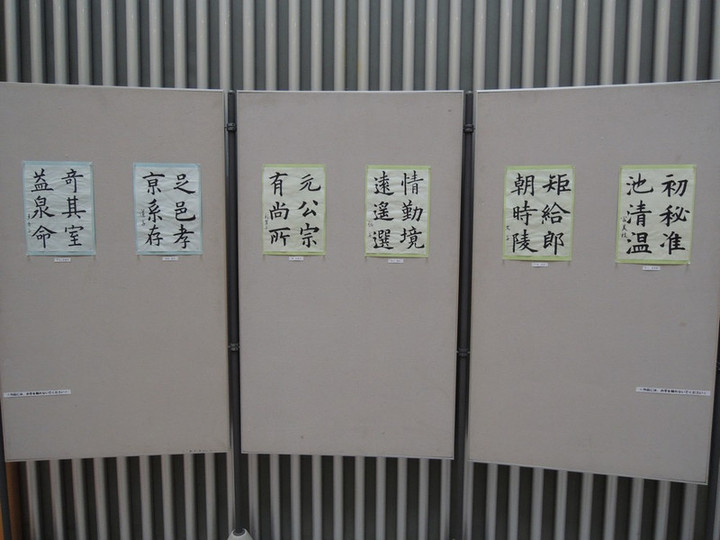 初秘准
池清温
矩給郎
朝時陵
情勤境
遠遙選
元公宗
有尚所
足邑孝
京系存
奇其室
益泉命